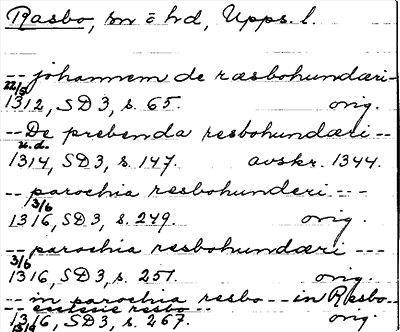 Rasbo, sn o hd, Upps. l.
-- johannem de ræsbohundæri-
22/5
1312, SD 3, s. 65. orig.
-- De prebenda resbohundæri --
u.d.
1314, SD 3, s. 147. avskr. 1344.
-- parochia resbohunderi ---
3/6
1316, SD 3, s. 249. orig.
-- parochia resbohundæri ---
3/6
1316, SD 3, s. 251. orig.
-- in parochia resbo -- in Resbo--
-- ecclesie resbo --
1316, SD 3, s. 267. orig.